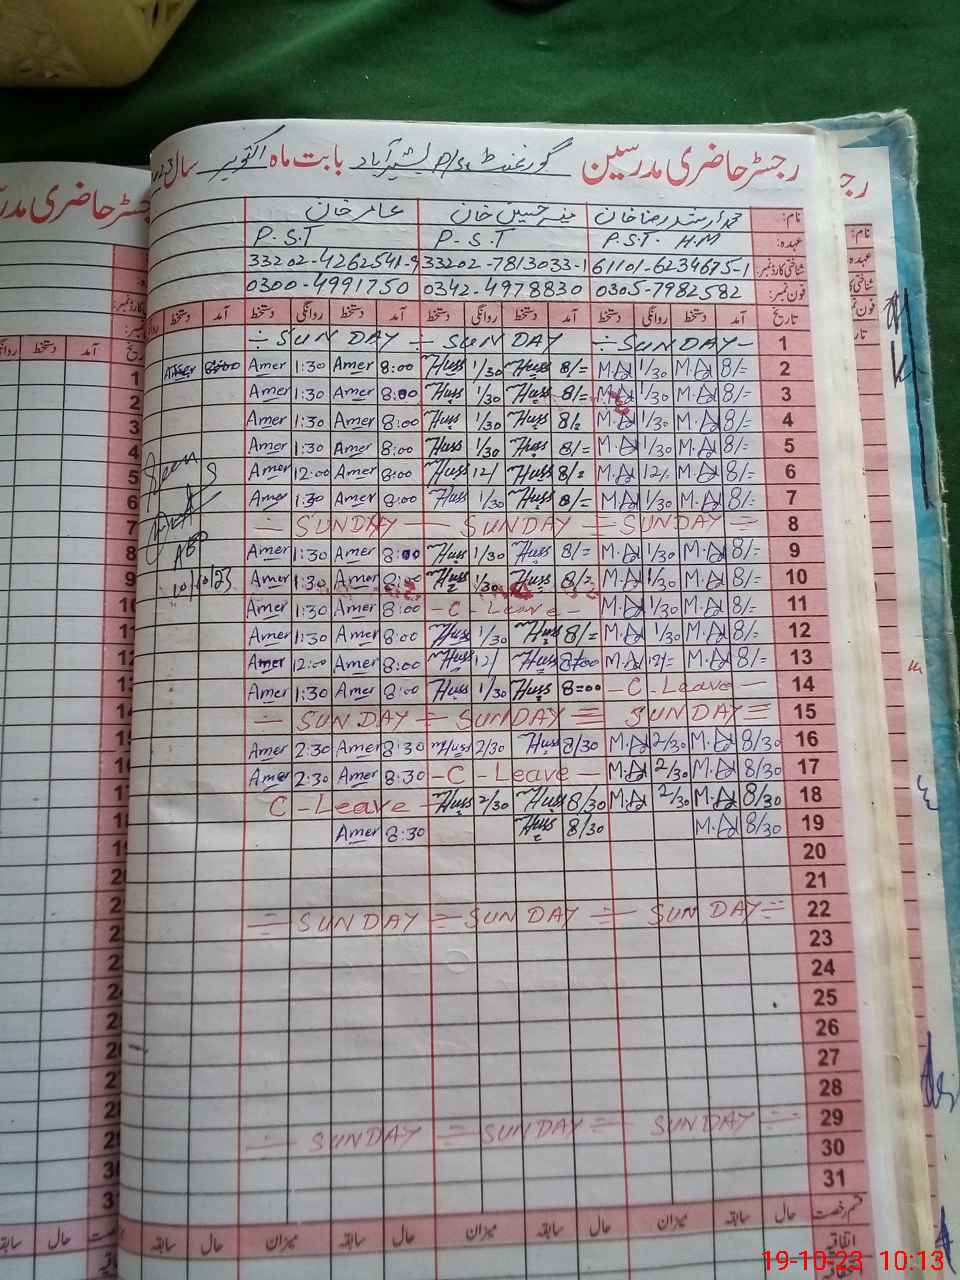 رجسٹر حاضری مدرسین گورنمنٹ P/S بشیر آباد بابت ماہ اکتوبر سال 2023
نام: محمد ارشد رضا خان حسین خان عامر خان
عہدہ: P.S.T. H.M P.S.T P.S.T
شناختی کارڈ نمبر: 61101-6234675-1 33202-7813033-1 33202-4262541-9
فون نمبر: 0305-7982582 0342-4978830 0300-4991750
تاریخ آمد دستخط روانگی دستخط آمد دستخط روانگی دستخط آمد دستخط روانگی دستخط آمد دستخط
1 SUNDAY SUNDAY SUNDAY
2 8/= M.A 1/30 M.A 8/= Huss 1/30 Huss 8:00 Amer 1:30 Amer 8:00 Amer
3 8/= M.A 1/30 M.A 8/= Huss 1/30 Huss 8:00 Amer 1:30 Amer
4 8/= M.A 1/30 M.A 8/= Huss 1/30 Huss 8:00 Amer 1:30 Amer
5 8/= M.A 1/30 M.A 8/= Huss 1/30 Huss 8:00 Amer 1:30 Amer
6 8/= M.A 12/= M.A 8/= Huss 12/ Huss 8:00 Amer 12:00 Amer
7 8/= M.A 1/30 M.A 8/= Huss 1/30 Huss 8:00 Amer 1:30 Amer
8 SUNDAY SUNDAY SUNDAY
9 8/= M.A 1/30 M.A 8/= Huss 1/30 Huss 8:00 Amer 1:30 Amer
10 8/= M.A 1/30 M.A 8/= Huss 1/30 Huss 8:00 Amer 1:30 Amer
11 8/= M.A 1/30 M.A C-Leave 8:00 Amer 1:30 Amer
12 8/= M.A 1/30 M.A 8/= Huss 1/30 Huss 8:00 Amer 1:30 Amer
13 8/= M.A 12/= M.A 8:00 Huss 12/ Huss 8:00 Amer 12:00 Amer
14 C-Leave 8=00 Huss 1/30 Huss 8:00 Amer 1:30 Amer
15 SUNDAY SUNDAY SUNDAY
16 8/30 M.A 2/30 M.A 8/30 Huss 2/30 Huss 8:30 Amer 2:30 Amer
17 8/30 M.A 2/30 M.A C-Leave 8:30 Amer 2:30 Amer
18 8/30 M.A 2/30 M.A 8/30 Huss 2/30 Huss C-Leave
19 8/30 M.A 8/30 Huss 8:30 Amer
20
21
22 SUNDAY SUNDAY SUNDAY
23
24
25
26
27
28
29 SUNDAY SUNDAY SUNDAY
30
31
قسم رخصت حال سابقہ میزان حال سابقہ میزان حال سابقہ میزان حال سابقہ
اتفاقیہ
Seen
10/10/23
19-10-23 10:13